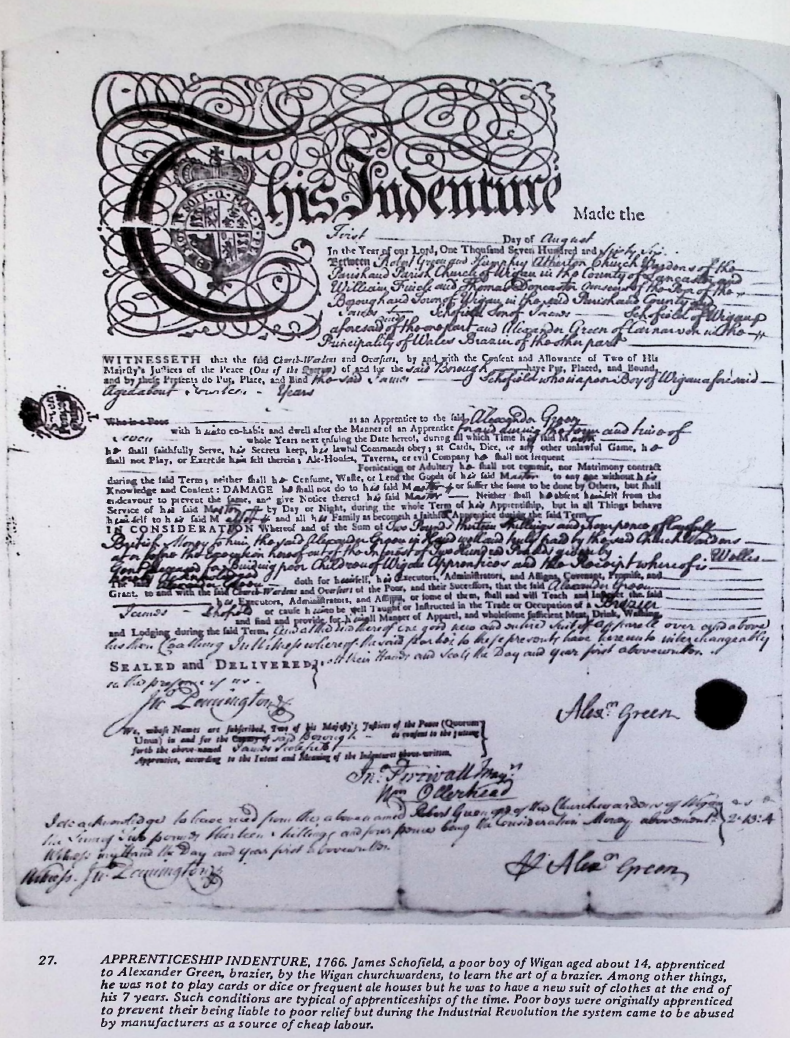 This Indenture Made the
First Day of August
In the Year of our Lord, One Thousand Seven Hundred and Sixty Six
Between Robt Green and Humphry Atherton Church Wardens of the
Parish and Parish Church of Wigan in the County of Lancaster and
William Finch and Thomas Doncaster Overseers of the Poor of the
Borough and Town of Wigan in the said Parish and County and
James Schofield Son of James Schofield of Wigan
aforesaid of the one part and Alexander Green of Carnarvon in the
Principality of Wales Brazier of the other part
WITNESSETH that the said Church-Wardens and Overseers, by and with the Consent and Allowance of Two of His
Majesty's Justices of the Peace (One of the Quorum) of and for the said Borough have Put, Placed, and Bound,
and by these Presents do Put, Place, and Bind the said James Schofield who is a poor Boy of Wigan aforesaid
Aged about fourteen Years
Who is a Poor as an Apprentice to the said Alexander Green
with him to co-habit and dwell after the Manner of an Apprentice for and during the term and time of
Seven whole Years next ensuing the Date hereof, during all which Time his said Master
he shall faithfully Serve, his Secrets keep, his lawful Commands obey; at Cards, Dice, or any other unlawful Game, he
shall not Play, or Exercise him self therein; Ale-Houses, Taverns, or evil Company he shall not frequent
Fornication or Adultery he shall not commit, nor Matrimony contract
during the said Term; neither shall he Consume, Waste, or Lend the Goods of his said Master to any one without his
Knowledge and Consent: DAMAGE he shall not do to his said Master or suffer the same to be done by Others, but shall
endeavour to prevent the same, and give Notice thereof his said Master Neither shall he absent himself from the
Service of his said Master by Day or Night, during the whole Term of his Apprenticeship, but in all Things behave
himself to his said Master and all his Family as becomes a faithful Apprentice during the said Term
IN CONSIDERATION Whereof and of the Sum of Two Pounds thirteen Shillings and four pence of lawfull
British Money to him the said Alexander Green in Hand well and truly paid by the said Church Wardens
at or before the Execution hereof out of the Interest of Two Hundred Pounds given by Wells
Gent deceased for Binding poor Children of Wigan Apprentices and the Receipt whereof is
hereby Acknowledged
doth for himself, his Executors, Administrators, and Assigns, Covenant, Promise, and
Grant, to and with the said Church-Wardens and Overseers of the Poor, and their Successors, that the said Alexander Green
Executors, Administrators, and Assigns, or some of them, shall and will Teach and Instruct the said
James Schofield or cause him to be well Taught or Instructed in the Trade or Occupation of a Brazier
and find and provide for him all Manner of Apparel, and wholesome sufficient Meat, Drink, Washing
and Lodging during the said Term, And at the end thereof one good new and entire suit of apparell over and above
his then Cloathing In Witness whereof the said parties to these presents have hereunto interchangeably
SEALED and DELIVERED, set their Hands and Seals the Day and year first abovewritten.
in the presence of us
Jno Lennington
Alexr Green
We, whose Names are subscribed, Two of his Majesty's Justices of the Peace (Quorum
Unus) in and for the County of said Borough do consent to the putting
forth the above-named James Scofield
Apprentice, according to the Intent and Meaning of the Indenture above-written.
Jno Percivall Mayr
Wm Ollerhead
I do acknowledge to have recd from the above named Robert Green one of the Churchwardens of Wigan
the Sum of Two pounds thirteen shillings and four pence being the Consideration Money abovementd 2:13:4
Witness my Hand the Day and year first abovewritten
Witness. Jno Lennington
Alexr Green
27. APPRENTICESHIP INDENTURE, 1766. James Schofield, a poor boy of Wigan aged about 14, apprenticed
to Alexander Green, brazier, by the Wigan churchwardens, to learn the art of a brazier. Among other things,
he was not to play cards or dice or frequent ale houses but he was to have a new suit of clothes at the end of
his 7 years. Such conditions are typical of apprenticeships of the time. Poor boys were originally apprenticed
to prevent their being liable to poor relief but during the Industrial Revolution the system came to be abused
by manufacturers as a source of cheap labour.